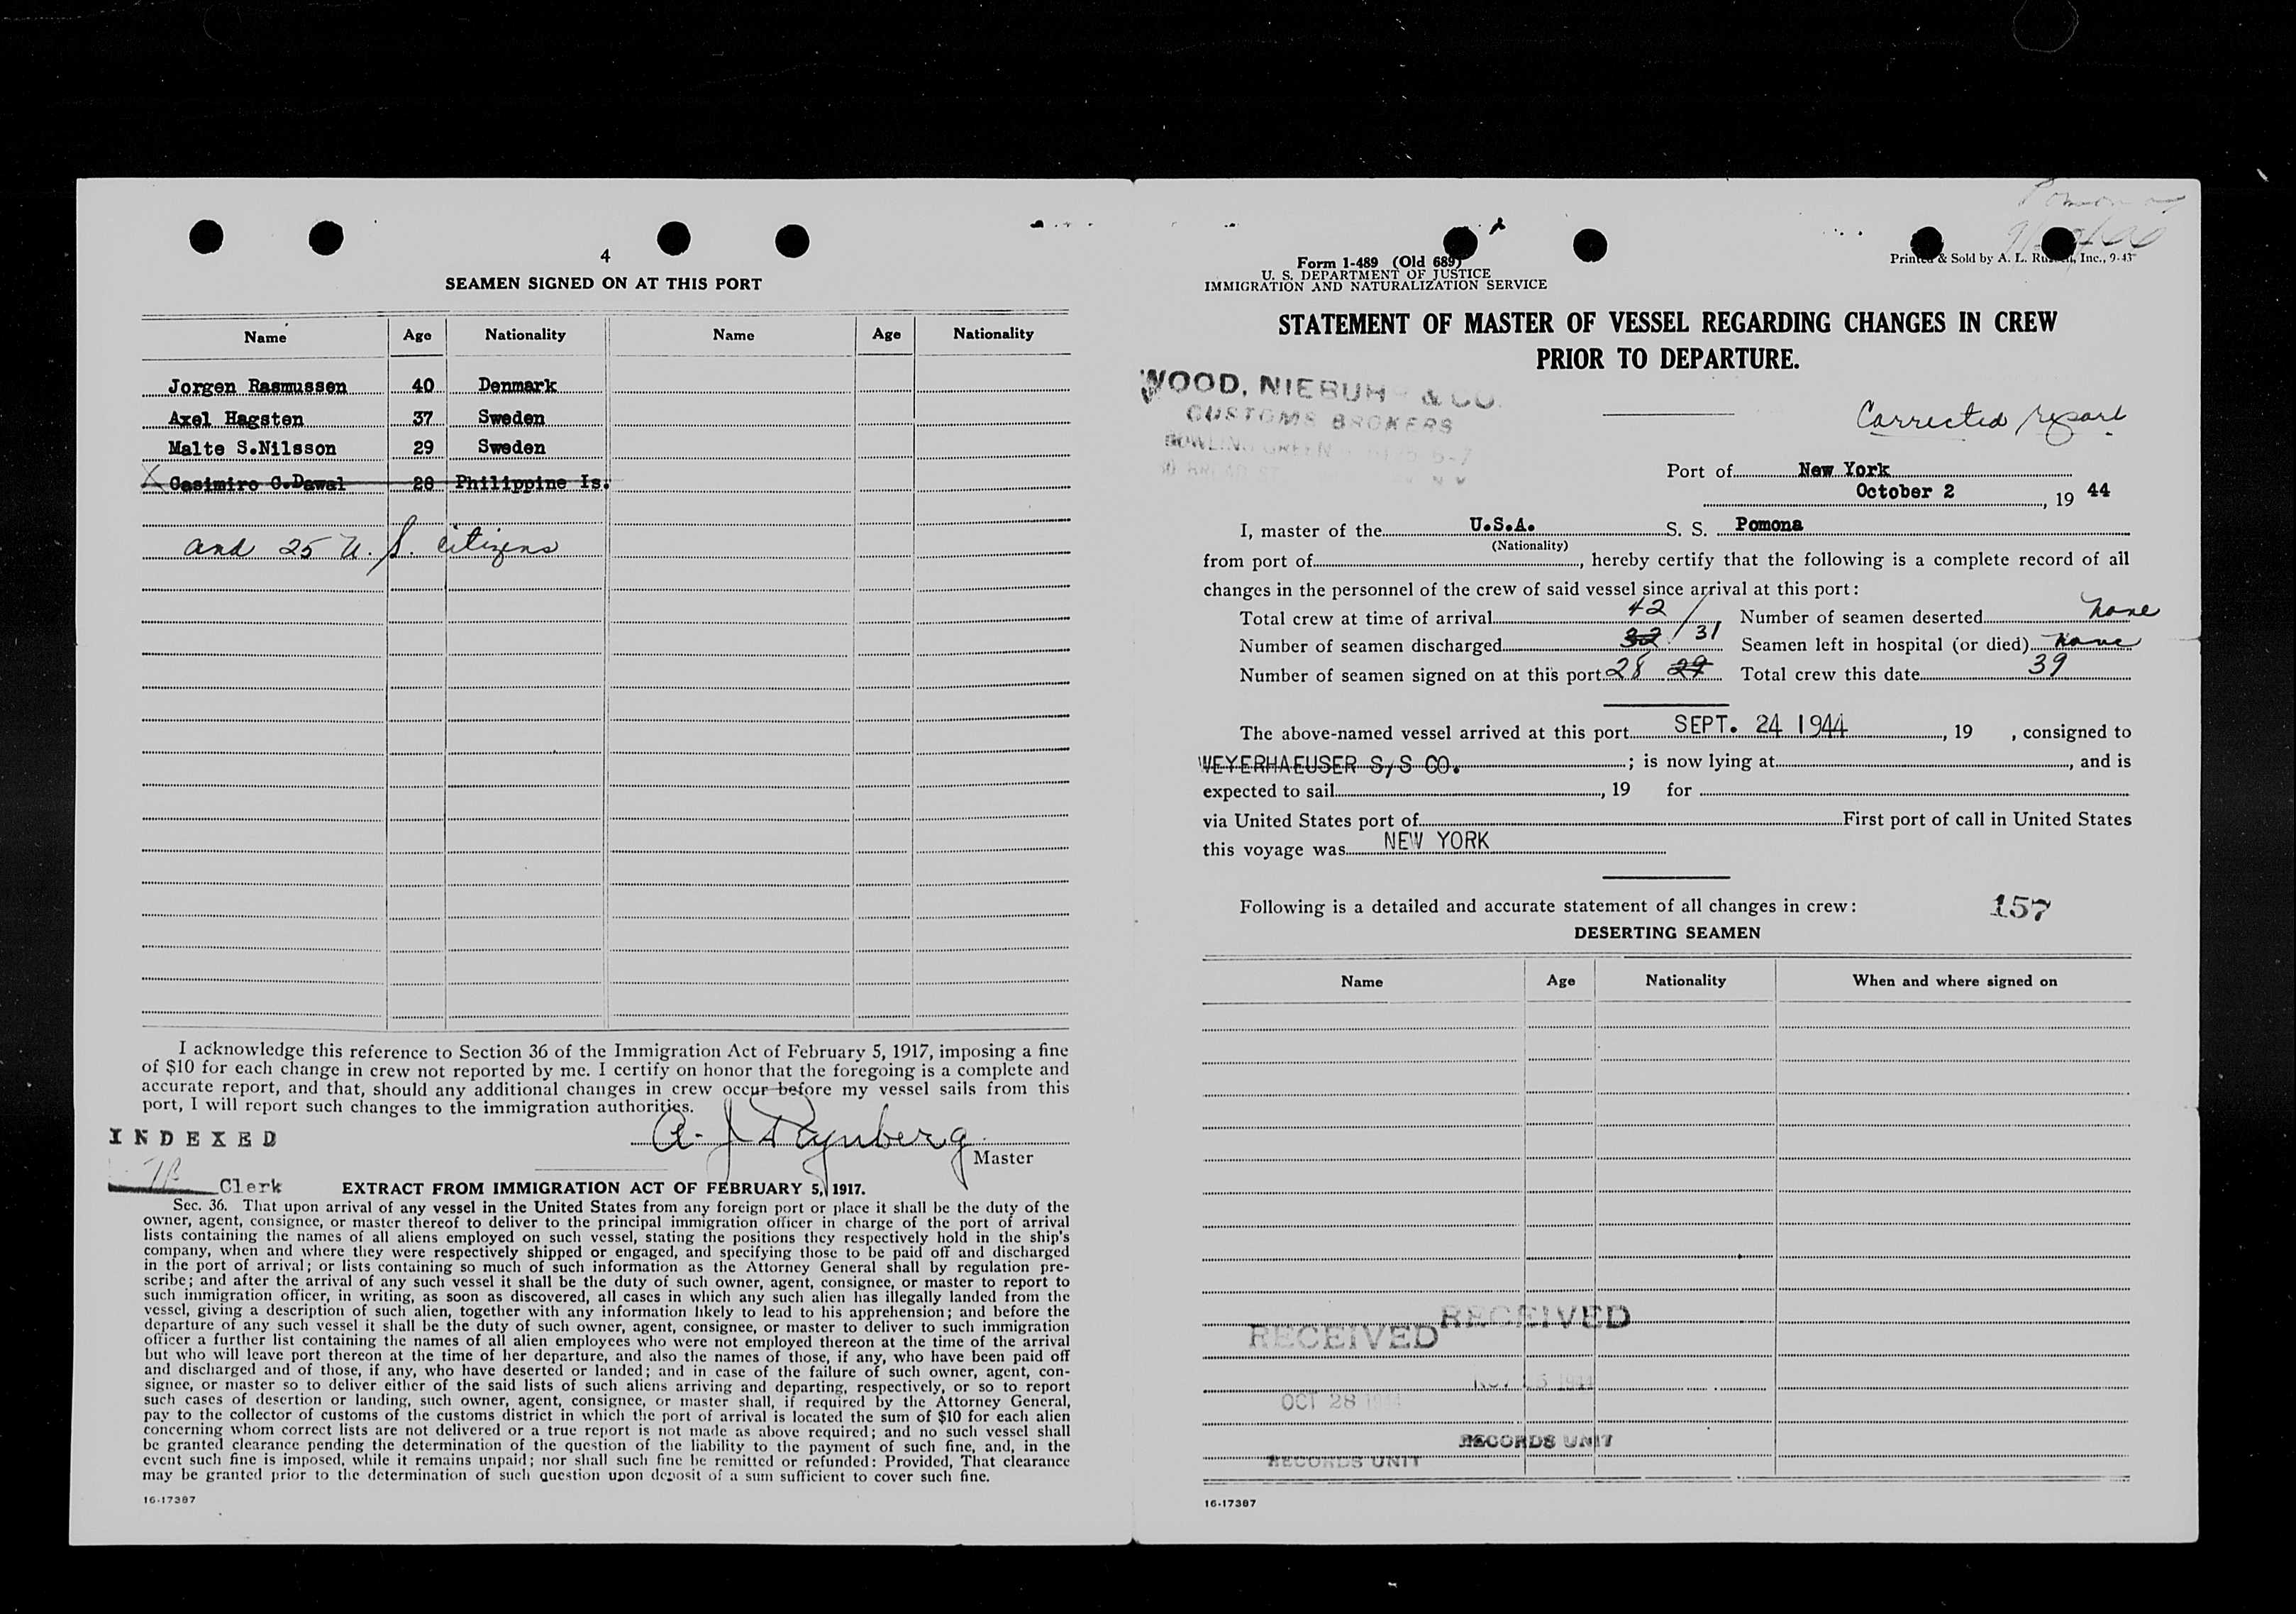 4
SEAMEN SIGNED ON AT THIS PORT
Name Age Nationality Name Age Nationality
Jorgen Rasmussen 40 Denmark
Axel Hagsten 37 Sweden
Malte S.Nilsson 29 Sweden
X Casimiro C.Dawal 28 Philippine Is.
and 25 U. S. citizens
I acknowledge this reference to Section 36 of the Immigration Act of February 5, 1917, imposing a fine
of $10 for each change in crew not reported by me. I certify on honor that the foregoing is a complete and
accurate report, and that, should any additional changes in crew occur before my vessel sails from this
port, I will report such changes to the immigration authorities.
INDEXED
A. J.
Master
Clerk
EXTRACT FROM IMMIGRATION ACT OF FEBRUARY 5, 1917.
Sec. 36. That upon arrival of any vessel in the United States from any foreign port or place it shall be the duty of the
owner, agent, consignee, or master thereof to deliver to the principal immigration officer in charge of the port of arrival
lists containing the names of all aliens employed on such vessel, stating the positions they respectively hold in the ship's
company, when and where they were respectively shipped or engaged, and specifying those to be paid off and discharged
in the port of arrival; or lists containing so much of such information as the Attorney General shall by regulation pre-
scribe; and after the arrival of any such vessel it shall be the duty of such owner, agent, consignee, or master to report to
such immigration officer, in writing, as soon as discovered, all cases in which any such alien has illegally landed from the
vessel, giving a description of such alien, together with any information likely to lead to his apprehension; and before the
departure of any such vessel it shall be the duty of such owner, agent, consignee, or master to deliver to such immigration
officer a further list containing the names of all alien employees who were not employed thereon at the time of the arrival
but who will leave port thereon at the time of her departure, and also the names of those, if any, who have been paid off
and discharged and of those, if any, who have deserted or landed; and in case of the failure of such owner, agent, con-
signee, or master so to deliver either of the said lists of such aliens arriving and departing, respectively, or so to report
such cases of desertion or landing, such owner, agent, consignee, or master shall, if required by the Attorney General,
pay to the collector of customs of the customs district in which the port of arrival is located the sum of $10 for each alien
concerning whom correct lists are not delivered or a true report is not made as above required; and no such vessel shall
be granted clearance pending the determination of the question of the liability to the payment of such fine, and, in the
event such fine is imposed, while it remains unpaid; nor shall such fine be remitted or refunded: Provided, That clearance
may be granted prior to the determination of such question upon deposit of a sum sufficient to cover such fine.
16-17387
Pomona
Form 1-489 (Old 689)
U. S. DEPARTMENT OF JUSTICE
IMMIGRATION AND NATURALIZATION SERVICE
Printed & Sold by A. L. Inc., 9-43
STATEMENT OF MASTER OF VESSEL REGARDING CHANGES IN CREW
PRIOR TO DEPARTURE.
WOOD, NIEBUHR & CO.
CUSTOMS BROKERS
BOWLING GREEN
Corrected report
Port of New York
October 2, 19 44
I, master of the U.S.A. S. S. Pomona
(Nationality)
from port of, hereby certify that the following is a complete record of all
changes in the personnel of the crew of said vessel since arrival at this port:
Total crew at time of arrival 42 Number of seamen deserted none
Number of seamen discharged 32 / 31 Seamen left in hospital (or died) none
Number of seamen signed on at this port 28 29 Total crew this date 39
The above-named vessel arrived at this port SEPT. 24 1944, 19 , consigned to
WEYERHAEUSER S/S CO.; is now lying at, and is
expected to sail, 19 for
via United States port of First port of call in United States
this voyage was NEW YORK
Following is a detailed and accurate statement of all changes in crew: 157
DESERTING SEAMEN
Name Age Nationality When and where signed on
RECEIVED
RECEIVED
OCT 28 1944
RECORDS UNIT
RECORDS UNIT
16-17387